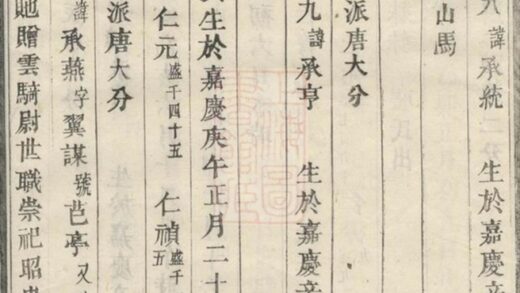 八 諱承統二分 生於嘉慶辛
山馬
派唐大分
九 諱承亨 生於嘉慶辛
生於嘉慶庚午正月二十
仁元 盛千四十五 仁禎 盛千 五
派唐大分
諱承燕字翼謀號芑亭又
貤贈雲騎尉世職崇祀昭忠